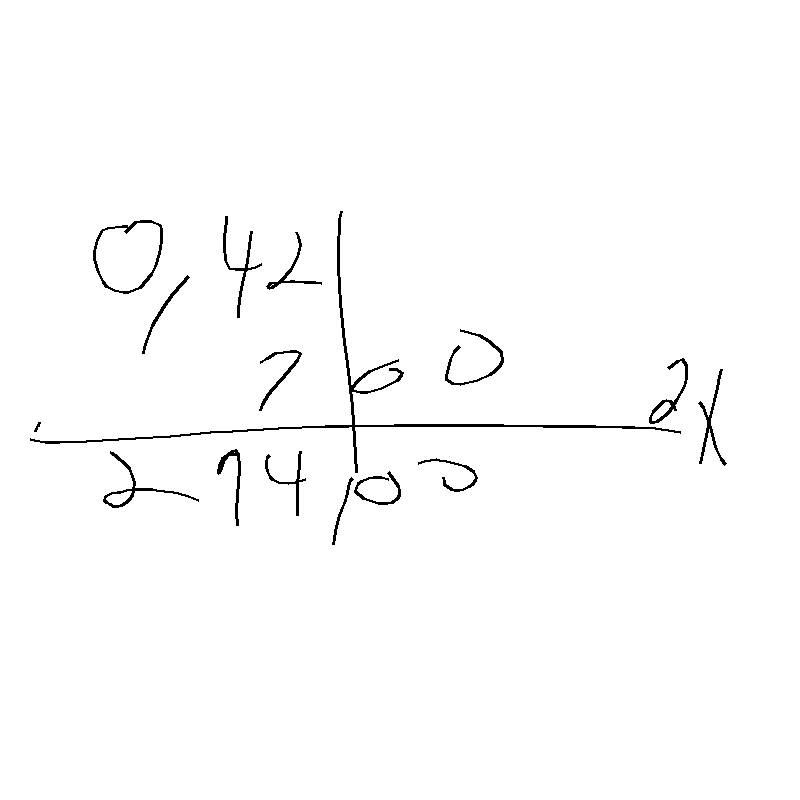 0,42
700 2x
294,00